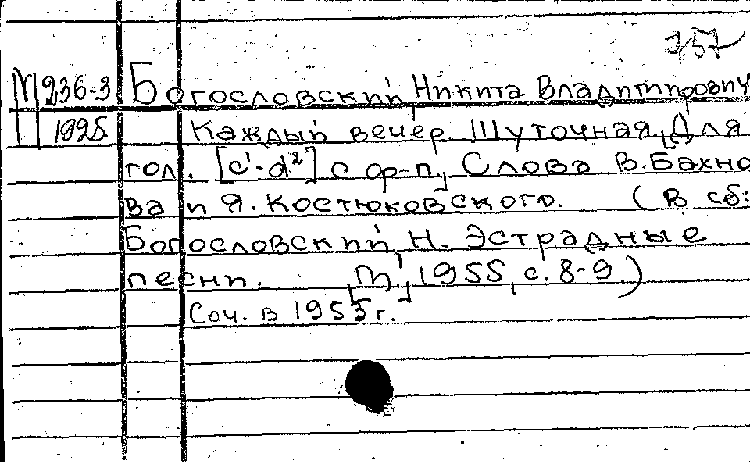 757
М 236-3 Богословский, Никита Владимирович
1925 Каждый вечер. Шуточная. Для
гол. [c¹-d²] с ф-п. Слова В. Бахно
ва и Я. Костюковского. (В сб:
Богословский, Н. Эстрадные
песни. М., 1955, с. 8-9)
Соч. в 1953 г.